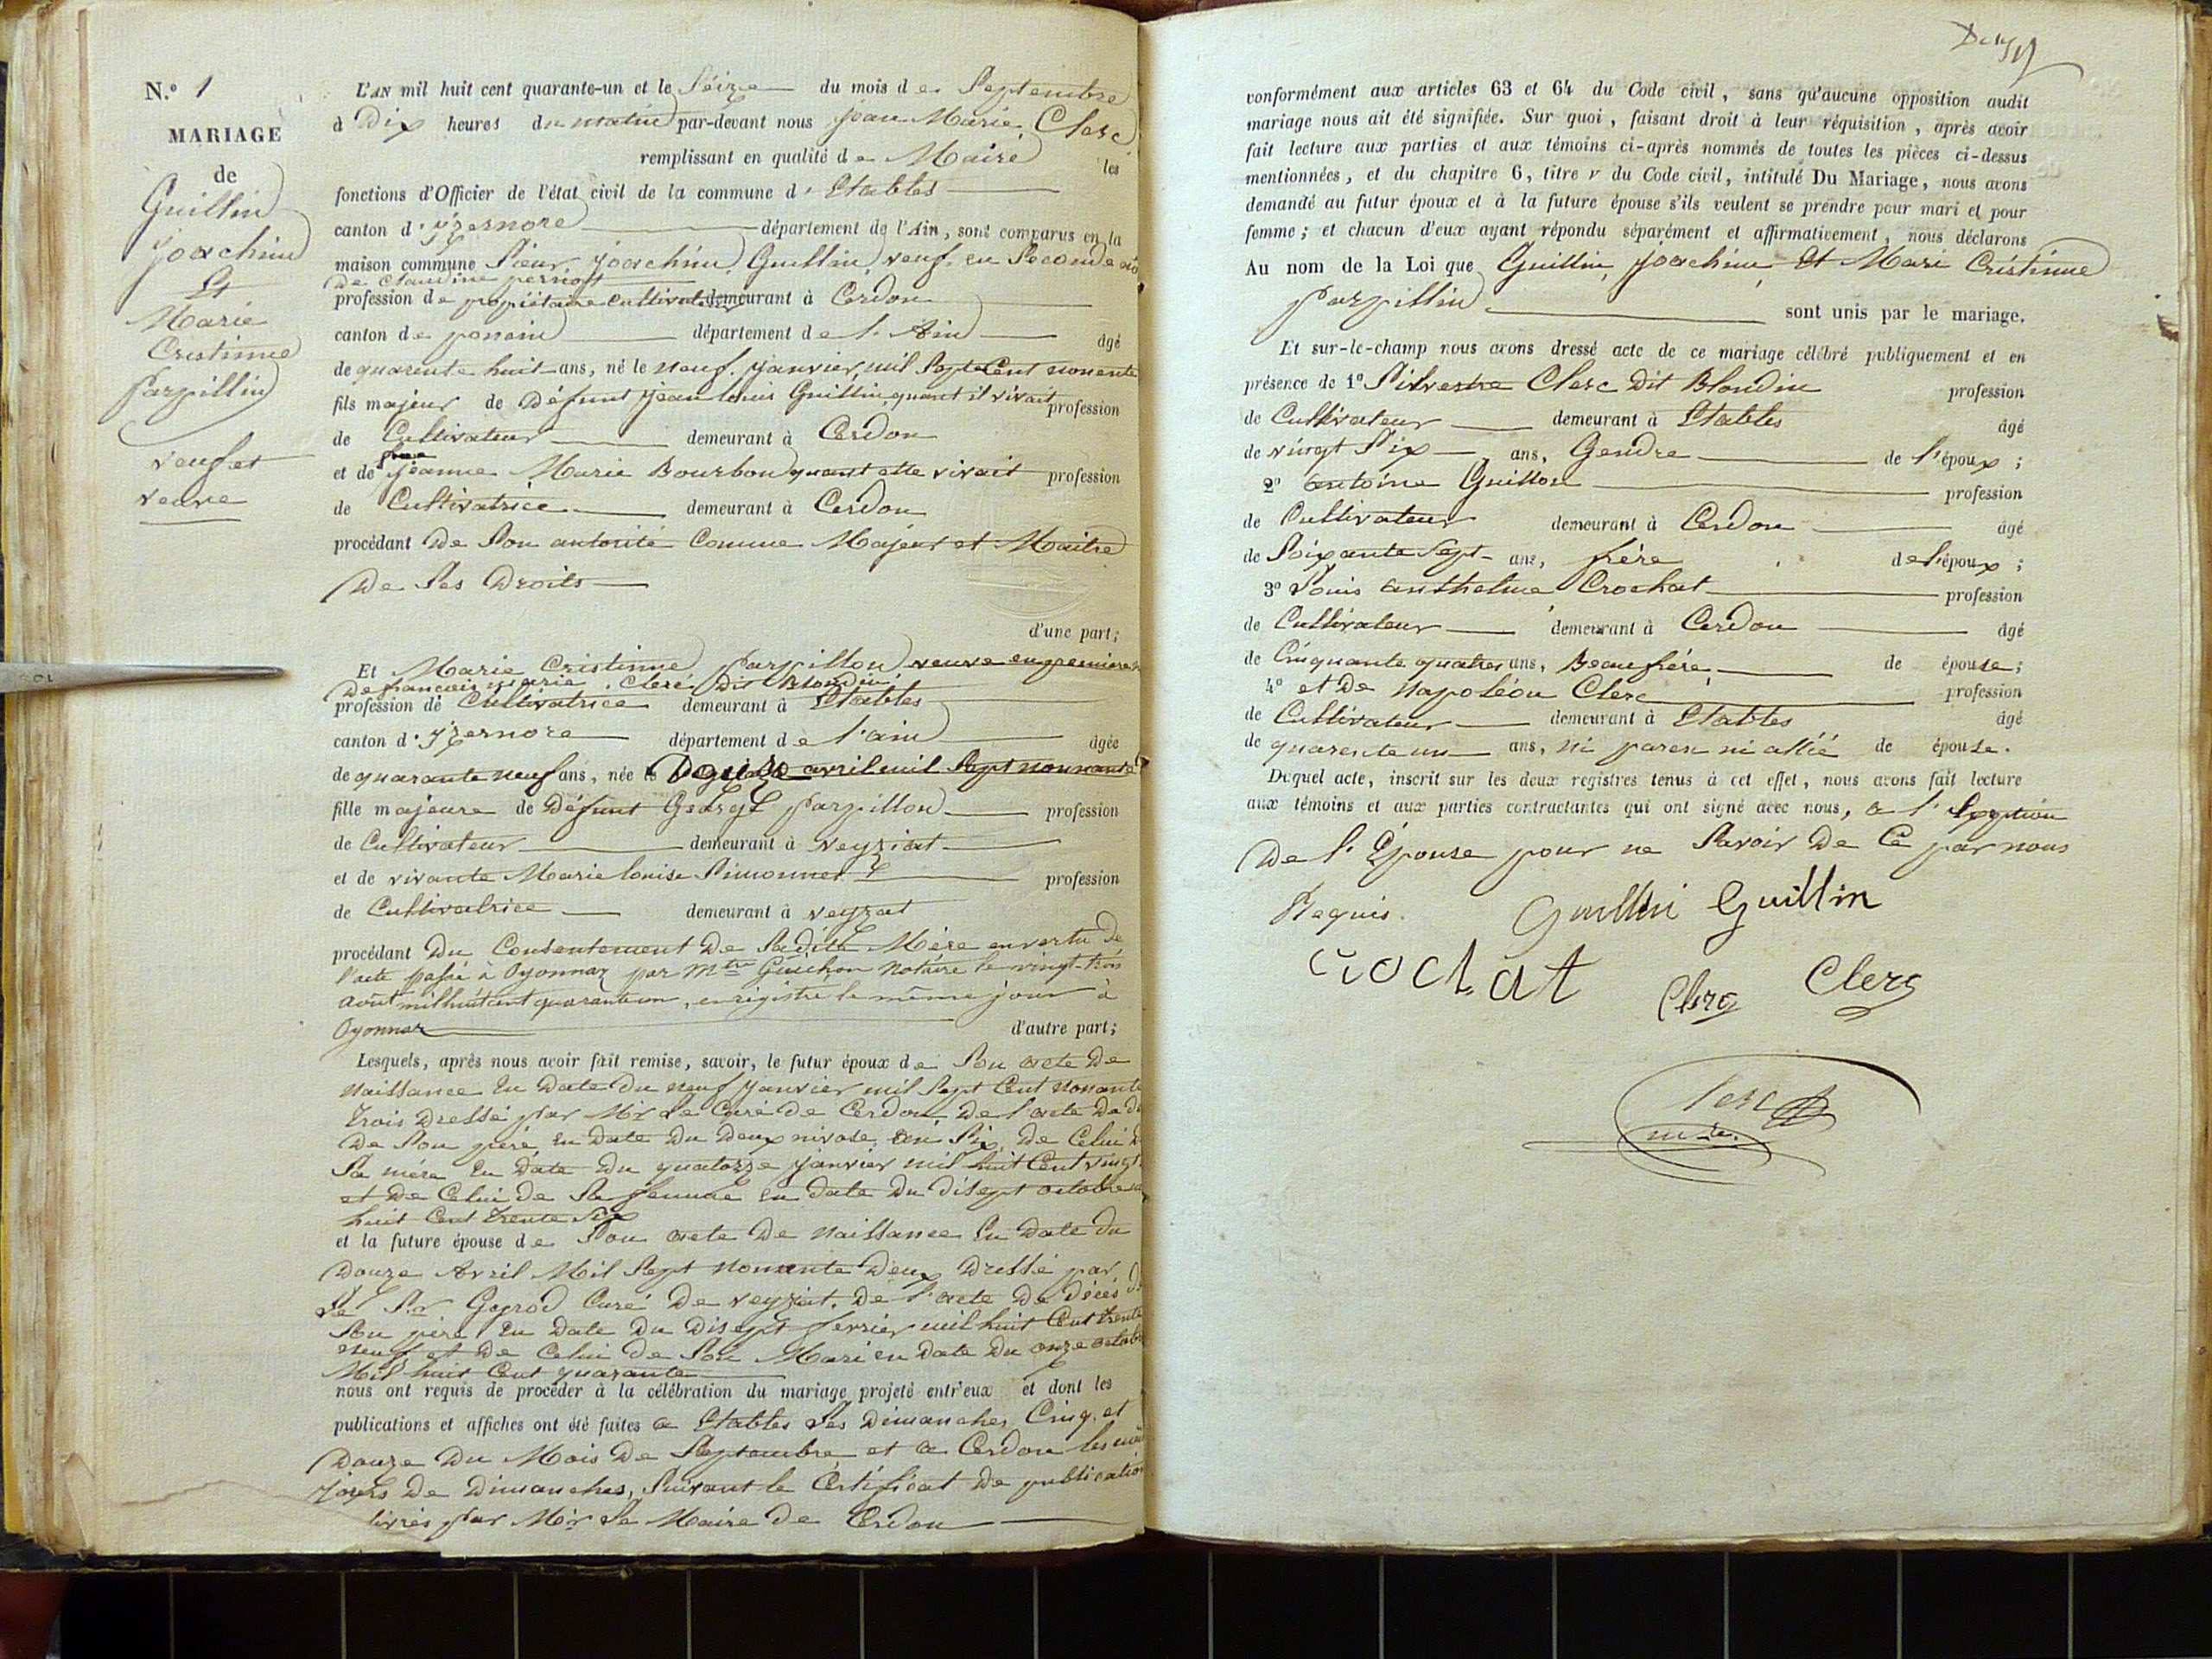 N.º 1
MARIAGE
de
Guillin
joachim
Et
Marie
Cristinne
parpillin
veuf et
veuve
L'AN mil huit cent quarante-un et le Séize du mois de Septembre
à Dix heures du matin par-devant nous jean Marie Clerc
remplissant en qualité de Maire les
fonctions d'Officier de l'état civil de la commune d' Etables
canton d' yzernore département de l'Ain, sont comparus en la
maison commune Sieur joachim Guillin veuf en Seconde
De Claudine
profession de propiétaire Cultivateur demeurant à Cerdon
canton de poncin département de l'Ain âgé
de quarente huit ans, né le neuf janvier mil Sept Cent nonente
fils majeur de Défunt jean louis Guillin quant il vivait profession
de Cultivateur demeurant à Cerdon
et de jeanne Marie Bourbon quant elle vivait profession
de Cultivatrice demeurant à Cerdon
procédant De Son autorité Comme Majeur et Maitre
De Ses Droits
d'une part;
Et Marie Cristinne parpillon veuve en premiere
De francois marie Clerc Dit Blondin
profession de Cultivatrice demeurant à Etables
canton d' yzernore département de l'ain âgée
de quarante neuf ans, née le Douze avril mil Sept nonnante
fille majeure de Défunt George parpillon profession
de Cultivateur demeurant à veyziat
et de vivante Marie louise Simonnet profession
de Cultivatrice demeurant à veyzat
procédant Du Consentement De Sadite Mère en vertu de
l'acte passé à Oyonnax par Mtre Guichon Notaire le vingt-trois
août mil huit cent quarante un, enrégistré le même jour à
Oyonnax d'autre part;
Lesquels, après nous avoir fait remise, savoir, le futur époux de Son acte De
Naissance En Date Du neuf janvier mil Sept Cent nonante
trois Dressé par Mr Le Curé De Cerdon, De l'acte De
De Son père en Date Du Deux nivose, an Six, De Celui
Sa mère En Date Du quatorze janvier mil huit Cent vingt
et De Celui De Sa femme en Date Du Disept octobre
huit Cent trente Six
et la future épouse de Son acte De Naissance En Date Du
Douze Avril Mil Sept Nonente Deux Dressé par
Le Sr Goyrod Curé De veyziat, De l'acte De Décès
Son père En Date Du Disept fevrier mil huit Cent trente
neuf et De Celui De Son Mari en Date Du onze octob
Mil huit Cent quarante
nous ont requis de procéder à la célébration du mariage projeté entr'eux et dont les
publications et affiches ont été faites a Etables Les Dimanches Cinq et
Douze Du Mois De Septembre et a Cerdon les
jours De Dimanches, Suivant le Certificat De publication
livrés par Mr Le Maire De Cerdon
conformément aux articles 63 et 64 du Code civil, sans qu'aucune opposition audit
mariage nous ait été signifiée. Sur quoi, faisant droit à leur réquisition, après avoir
fait lecture aux parties et aux témoins ci-après nommés de toutes les pièces ci-dessus
mentionnées, et du chapitre 6, titre V du Code civil, intitulé Du Mariage, nous avons
demandé au futur époux et à la future épouse s'ils veulent se prendre pour mari et pour
femme; et chacun d'eux ayant répondu séparément et affirmativement, nous déclarons
Au nom de la Loi que Guillin joachim Et Mari Cristinne
parpillin sont unis par le mariage.
Et sur-le-champ nous avons dressé acte de ce mariage célébré publiquement et en
présence de 1º Silvestre Clerc Dit Blondin profession
de Cultivateur demeurant à Etables âgé
de vingt Six ans, Gendre de l'époux;
2º antoine Guillon profession
de Cultivateur demeurant à Cerdon âgé
de Soixante Sept ans, frère de l'époux;
3º Louis anthelme Crochat profession
de Cultivateur demeurant à Cerdon âgé
de Cinquante quatre ans, Beau frére de épouse;
4º et De Napoléon Clerc profession
de Cultivateur demeurant à Etables âgé
de quarente un ans, ni paren ni allié de épouse.
Duquel acte, inscrit sur les deux registres tenus à cet effet, nous avons fait lecture
aux témoins et aux parties contractantes qui ont signé avec nous, a l'Exeption
De l'Epouse pour ne Savoir De Ce par nous
Requis. Guillin Guillin
Crochat Clerc Clerc
Clerc
mre.